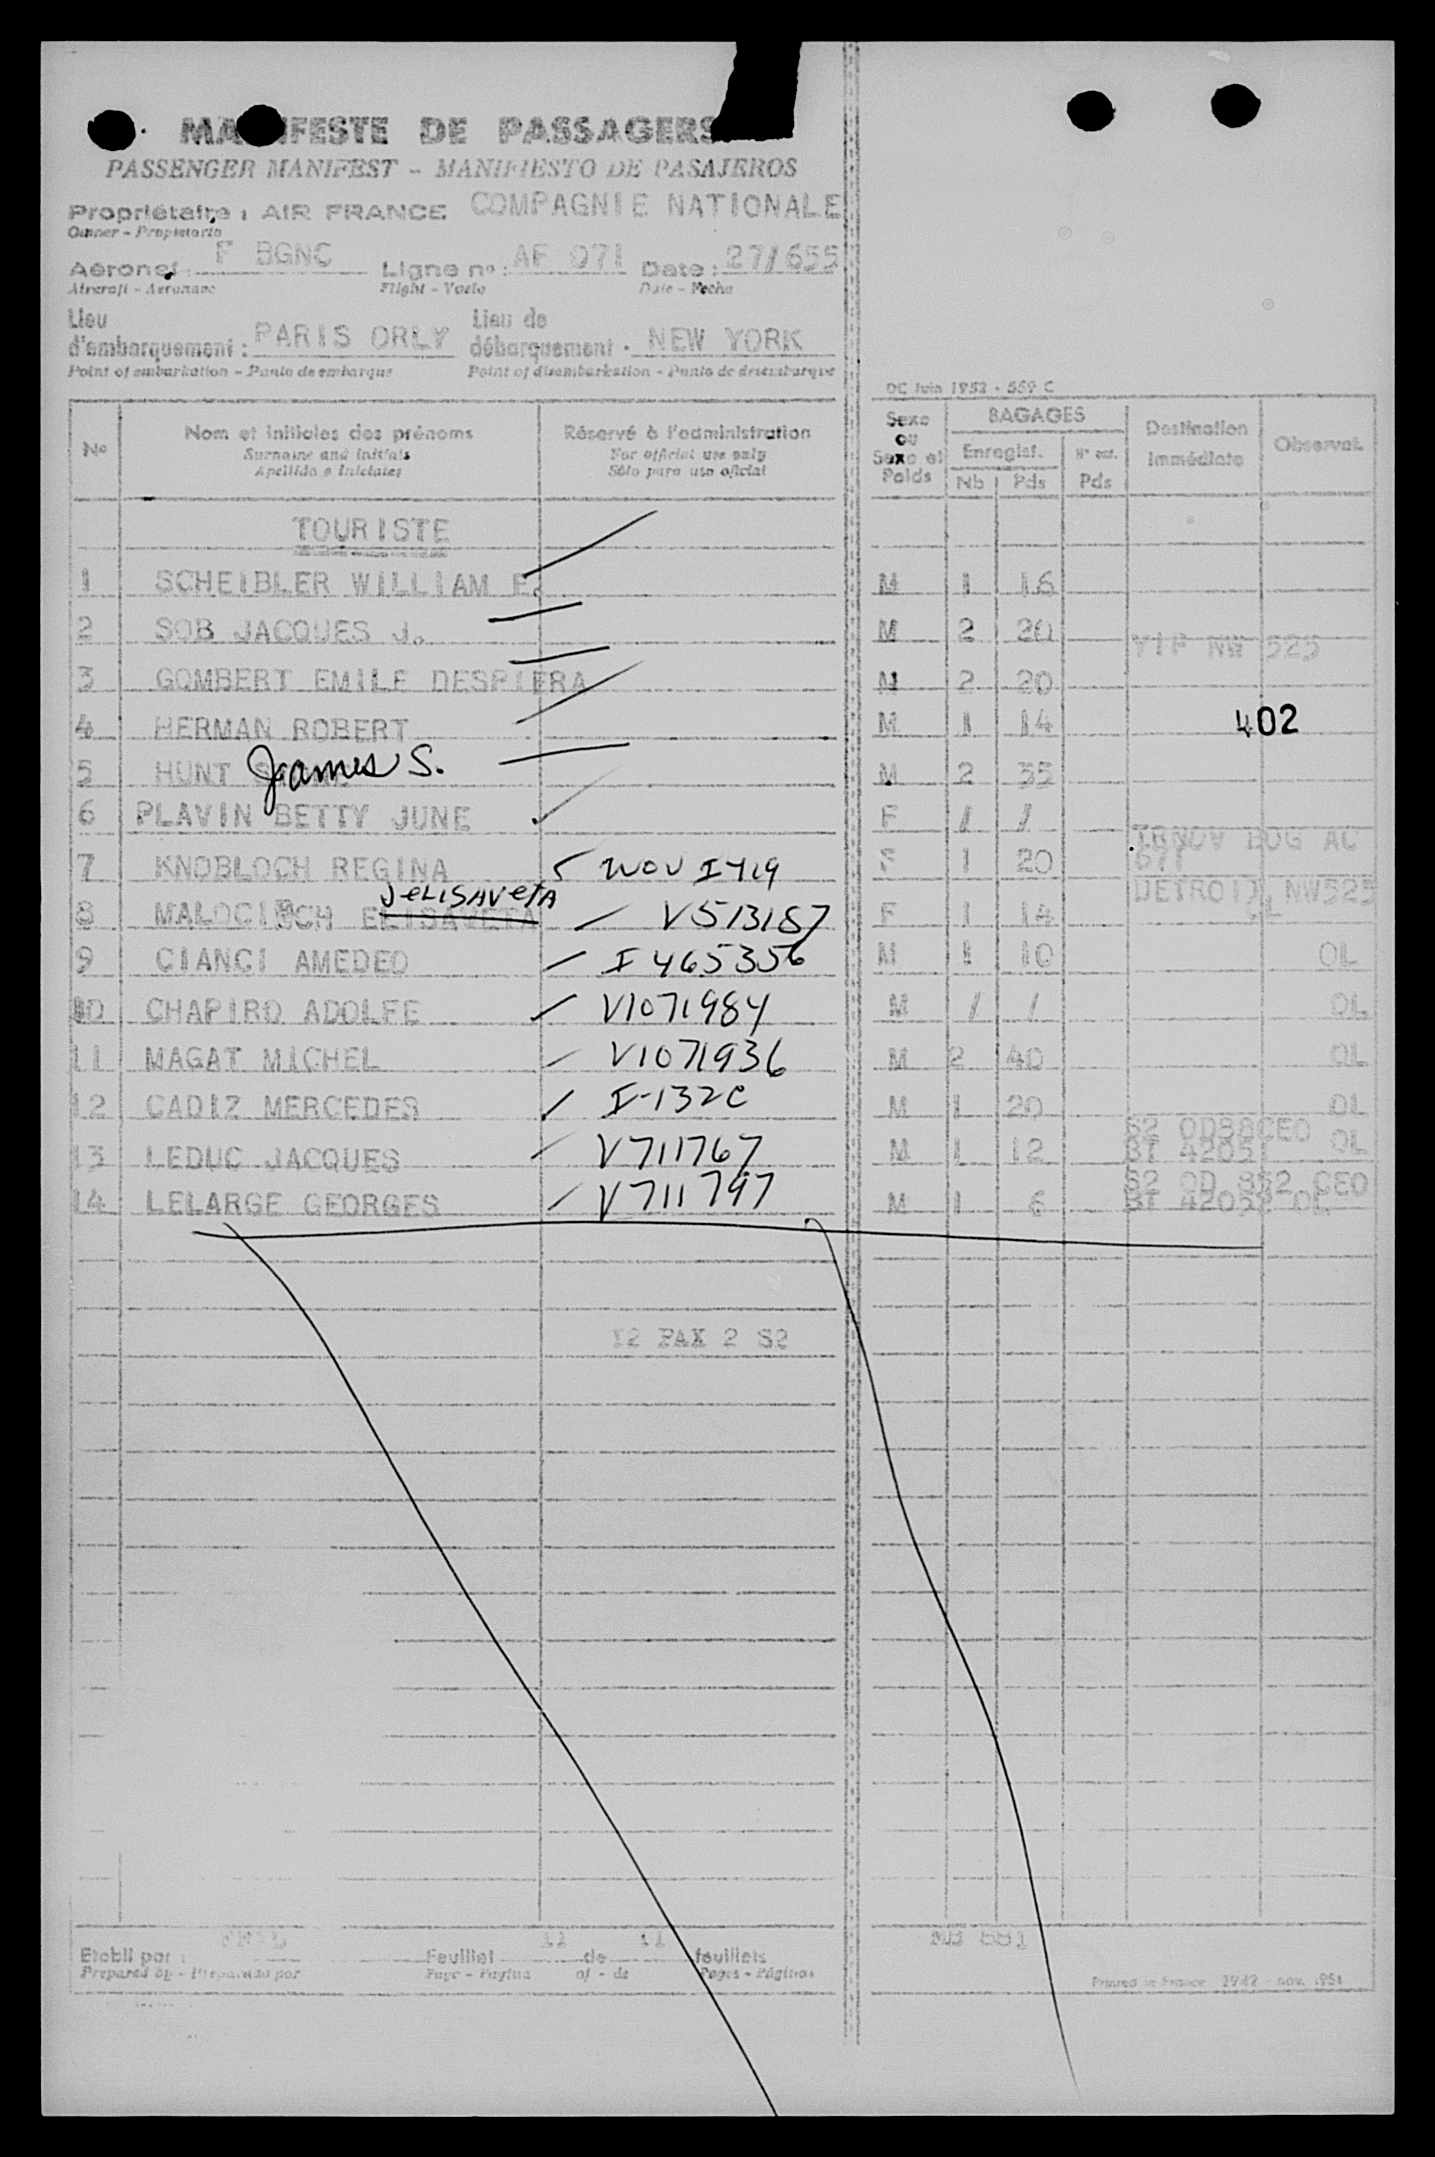 MANIFESTE DE PASSAGERS
PASSENGER MANIFEST - MANIFIESTO DE PASAJEROS
Propriétaire : AIR FRANCE COMPAGNIE NATIONALE
Owner - Propietario
Aéronef : F BGNC Ligne n° : AF 071 Date : 27/655
Aircraft - Aeronave Flight - Vuelo Date - Fecha
Lieu d'embarquement : PARIS ORLY Lieu de débarquement : NEW YORK
Point of embarkation - Punto de embarque Point of disembarkation - Punto de desembarque
OC Juin 1952 - 559 C
N° Nom et initiales des prénoms Réservé à l'administration Sexe ou Sexe et Poids BAGAGES Destination Immédiate Observat.
Surname and initials For official use only Enregist.
Apellido e iniciales Sólo para uso oficial Nb Pds Pds
TOURISTE
1 SCHEIBLER WILLIAM E. M 1 16
2 SOB JACQUES J. M 2 20
YIP NW 525
3 GOMBERT EMILE DESPIERA M 2 20
4 HERMAN ROBERT M 1 14 402
5 HUNT James S. M 2 35
6 PLAVIN BETTY JUNE F / /
7 KNOBLOCH REGINA NOV I 419 F 1 20
JELISAVETA
DETROIT NW525
8 MALOCI CH ELISAVETA V513187 F 1 14
9 CIANCI AMEDEO I 465356 M 1 10 OL
10 CHAPIRO ADOLFE V1071984 M / / OL
11 MAGAT MICHEL V1071936 M 2 40 OL
12 CADIZ MERCEDES I-132C M 1 20 OL
13 LEDUC JACQUES V711767 M 1 12 BT 42051 OL
14 LELARGE GEORGES V711797 M 1 6 BT 42052 OL
12 PAX 2 S2
Etabli par : Feuillet 11 de 11 feuillets
Prepared by - Preparado por Page - Página of - de Pages - Páginas
Printed in France